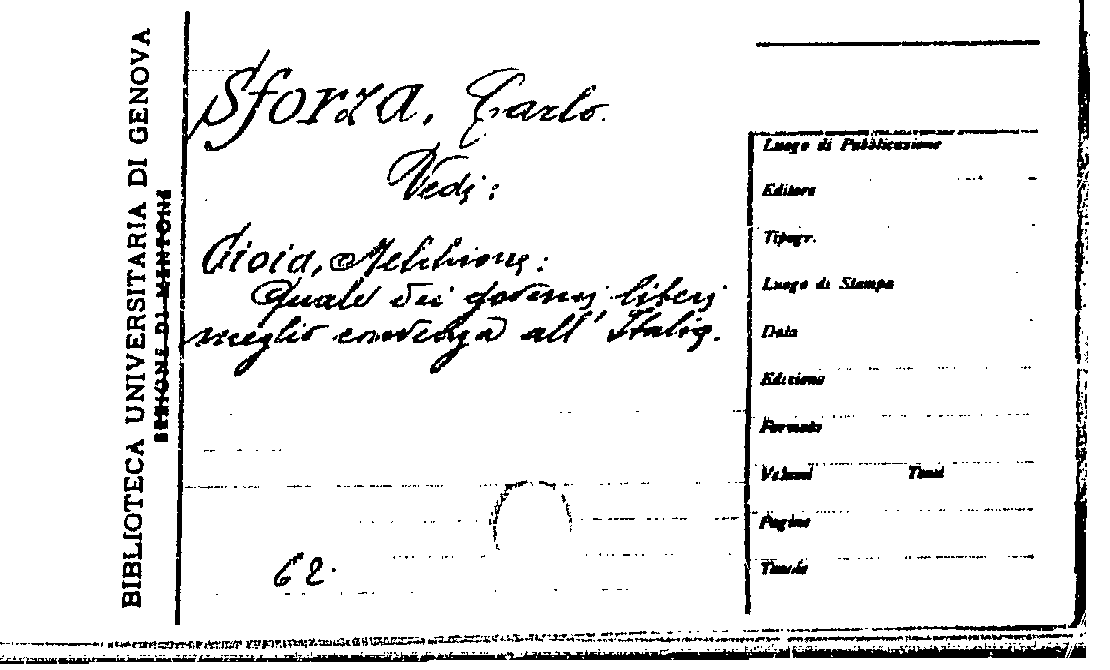 BIBLIOTECA UNIVERSITARIA DI GENOVA
SEZIONE DI MENTONE
Sforza, Carlo.
Vedi:
Gioia, Melchiorre:
Quale dei governi liberi
meglio convenga all'Italia.
62.
Luogo di Pubblicazione
Editore
Tipogr.
Luogo di Stampa
Data
Edizione
Formato
Volumi Tomi
Pagine
Tavole